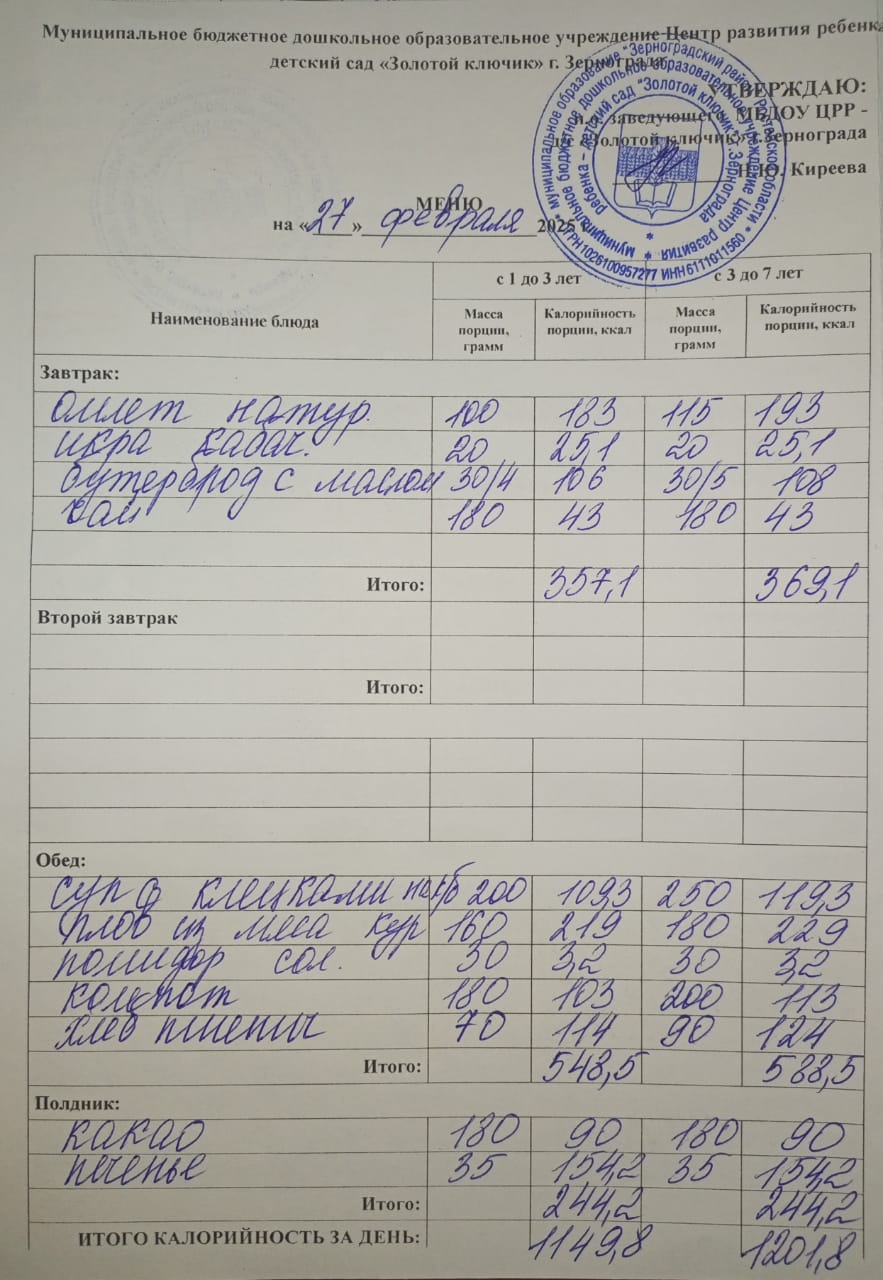 Муниципальное бюджетное дошкольное образовательное учреждение Центр развития ребенка
детский сад «Золотой ключик» г. Зернограда
УТВЕРЖДАЮ:
и.о. заведующего МБДОУ ЦРР -
д/с «Золотой ключик» г.Зернограда
Н.Ю. Киреева
* муниципальное образование "Зерноградский район" Ростовской области * ОГРН 1026100957277 ИНН 6111011560
Муниципальное бюджетное дошкольное образовательное учреждение Центр развития
ребенка – детский сад "Золотой ключик" г. Зернограда
МЕНЮ
на «27» февраля 2025 г.
Наименование блюда с 1 до 3 лет с 3 до 7 лет
Масса порции, грамм Калорийность порции, ккал Масса порции, грамм Калорийность порции, ккал
Завтрак:
омлет натур. 100 183 115 193
икра кабач. 20 25,1 20 25,1
бутерброд с маслом 30/4 106 30/5 108
чай 180 43 180 43
Итого: 357,1 369,1
Второй завтрак
Итого:
Обед:
суп с клецками на к/б 200 109,3 250 119,3
плов из мяса кур 160 219 180 229
помидор сол. 30 3,2 30 3,2
компот 180 103 200 113
хлеб пшенич 70 114 90 124
Итого: 548,5 588,5
Полдник:
какао 180 90 180 90
печенье 35 154,2 35 154,2
Итого: 244,2 244,2
ИТОГО КАЛОРИЙНОСТЬ ЗА ДЕНЬ: 1149,8 1201,8